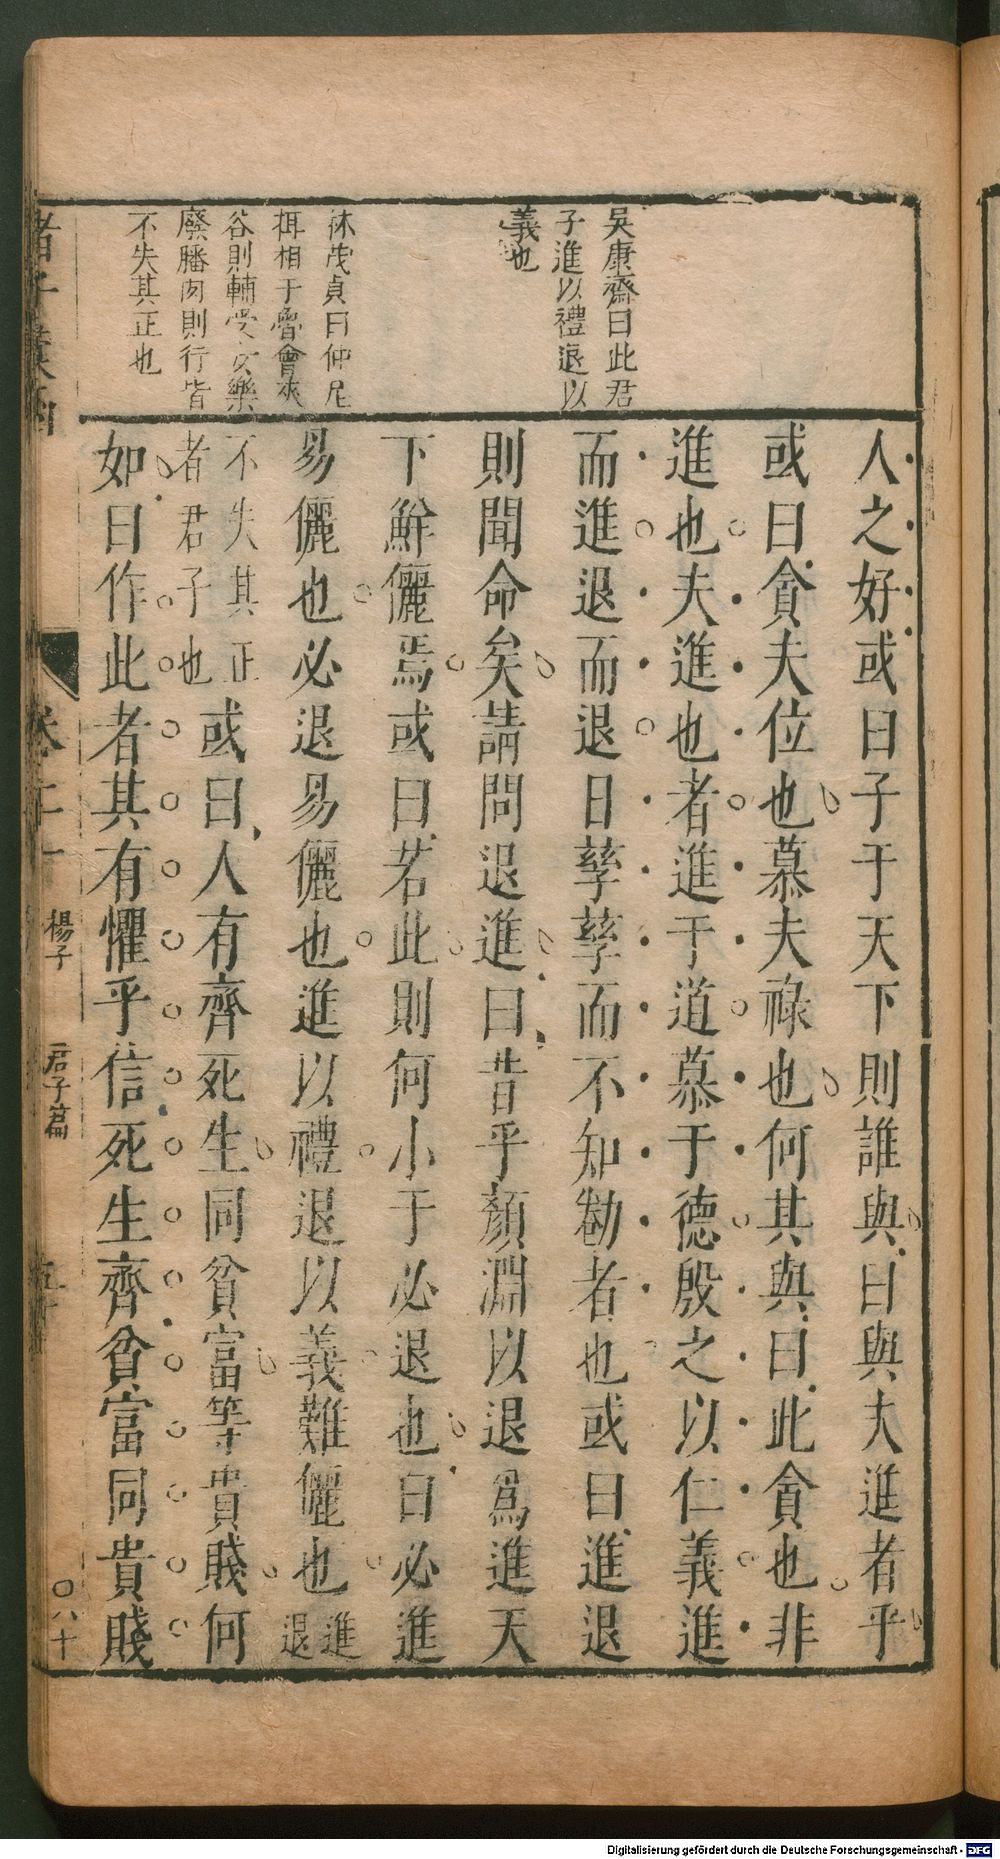 吳康齋曰此君
子進以禮退以
義也
林茂貞曰仲尼
相于魯會夾
谷則輔受女樂
廢膰肉則行皆
不失其正也
人之好或曰子于天下則誰與曰與夫進者乎
或曰貪夫位也慕夫祿也何其與曰此貪也非
進也夫進也者進于道慕于德殷之以仁義進
而進退而退日孳孳而不知勌者也或曰進退
則聞命矣請問退進曰昔乎顏淵以退爲進天
下鮮儷焉或曰若此則何小于必退也曰必進
易儷也必退易儷也進以禮退以義難儷也進
退
不失其正
者君子也
或曰人有齊死生同貧富等貴賤何
如曰作此者其有懼乎信死生齊貧富同貴賤
諸子
卷二十一
楊子
君子篇
五十
〇八十
Digitalisierung gefördert durch die Deutsche Forschungsgemeinschaft - DFG